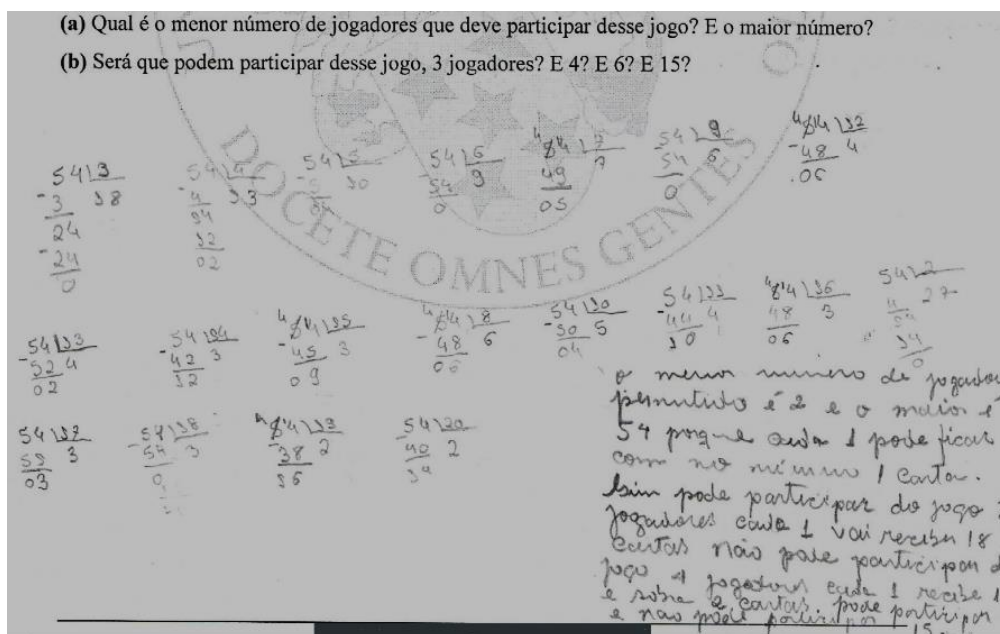 (a) Qual é o menor número de jogadores que deve participar desse jogo? E o maior número?
(b) Será que podem participar desse jogo, 3 jogadores? E 4? E 6? E 15?
DOCETE OMNES GENTES
54 3
- 3 18
24
- 24
0
54 4
- 4 13
14
12
02
54 5
- 5 10
54 6
54 9
0
54 7
49 7
05
54 9
54 6
0
54 12
- 48 4
06
54 13
- 52 4
02
54 14
- 42 3
12
54 15
- 45 3
09
54 8
- 48 6
06
54 10
- 50 5
04
54 11
- 44 4
10
54 16
48 3
06
54 2
4 27
14
14
0
54 17
51 3
03
54 18
- 54 3
0
54 19
- 38 2
16
54 20
- 40 2
14
o menor número de jogador
permitido é 2 e o maior é
54 porque cada 1 pode ficar
com no mínimo 1 carta.
Sim pode participar do jogo
jogadores cada 1 vai receber 18
cartas não pode participar d
jogo 4 jogadores cada 1 recebe 1
e sobra 2 cartas. pode participar
e não pode participar 15